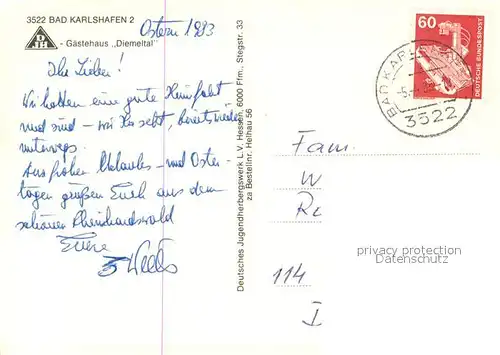 3522 BAD KARLSHAFEN 2
DJH - Gästehaus „Diemeltal"
Ostern 1983
Ihr Lieben!
Wir hatten eine gute Heimfahrt
und sind – wie Ihr seht, bereits wieder
unterwegs.
Aus frohen Urlaubs- und Oster-
tagen grüßen Euch aus dem
schönen Rheinhardswald
Eure
5
Deutsches Jugendherbergswerk L. V. Hessen, 6000 Ffm., Stegstr. 33
za Bestellnr. Helhan 56
60
DEUTSCHE BUNDESPOST
BAD KARLSHAFEN
3522
Fam.
W
Re
114
I
privacy protection
Datenschutz